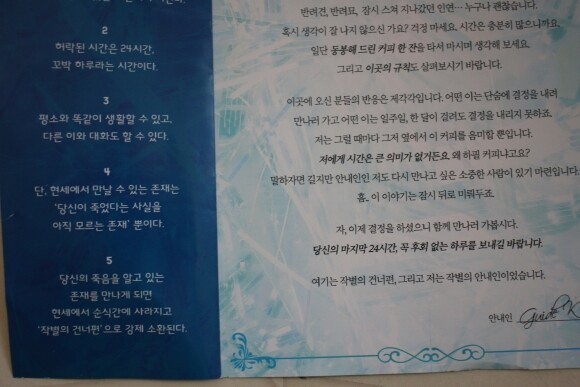 2
허락된 시간은 24시간,
꼬박 하루라는 시간이다.
3
평소와 똑같이 생활할 수 있고,
다른 이와 대화도 할 수 있다.
4
단, 현세에서 만날 수 있는 존재는
'당신이 죽었다는 사실을
아직 모르는 존재' 뿐이다.
5
당신의 죽음을 알고 있는
존재를 만나게 되면
현세에서 순식간에 사라지고
'작별의 건너편'으로 강제 소환된다.
반려견, 반려묘, 잠시 스쳐 지나갔던 인연… 누구나 괜찮습니다.
혹시 생각이 잘 나지 않으신 가요? 걱정 마세요. 시간은 충분히 많으니까요.
일단 동봉해 드린 커피 한 잔을 타서 마시며 생각해 보세요.
그리고 이곳의 규칙도 살펴보시기 바랍니다.
이곳에 오신 분들의 반응은 제각각입니다. 어떤 이는 단숨에 결정을 내려
만나러 가고 어떤 이는 일주일, 한 달이 걸려도 결정을 내리지 못하죠.
저는 그럴 때마다 그저 옆에서 이 커피를 음미할 뿐입니다.
저에게 시간은 큰 의미가 없거든요. 왜 하필 커피냐고요?
말하자면 길지만 안내인인 저도 다시 만나고 싶은 소중한 사람이 있기 마련입니다.
흠.. 이 이야기는 잠시 뒤로 미뤄두죠.
자, 이제 결정을 하셨으니 함께 만나러 가봅시다.
당신의 마지막 24시간, 꼭 후회 없는 하루를 보내길 바랍니다.
여기는 작별의 건너편, 그리고 저는 작별의 안내인이었습니다.
안내인 Guide K